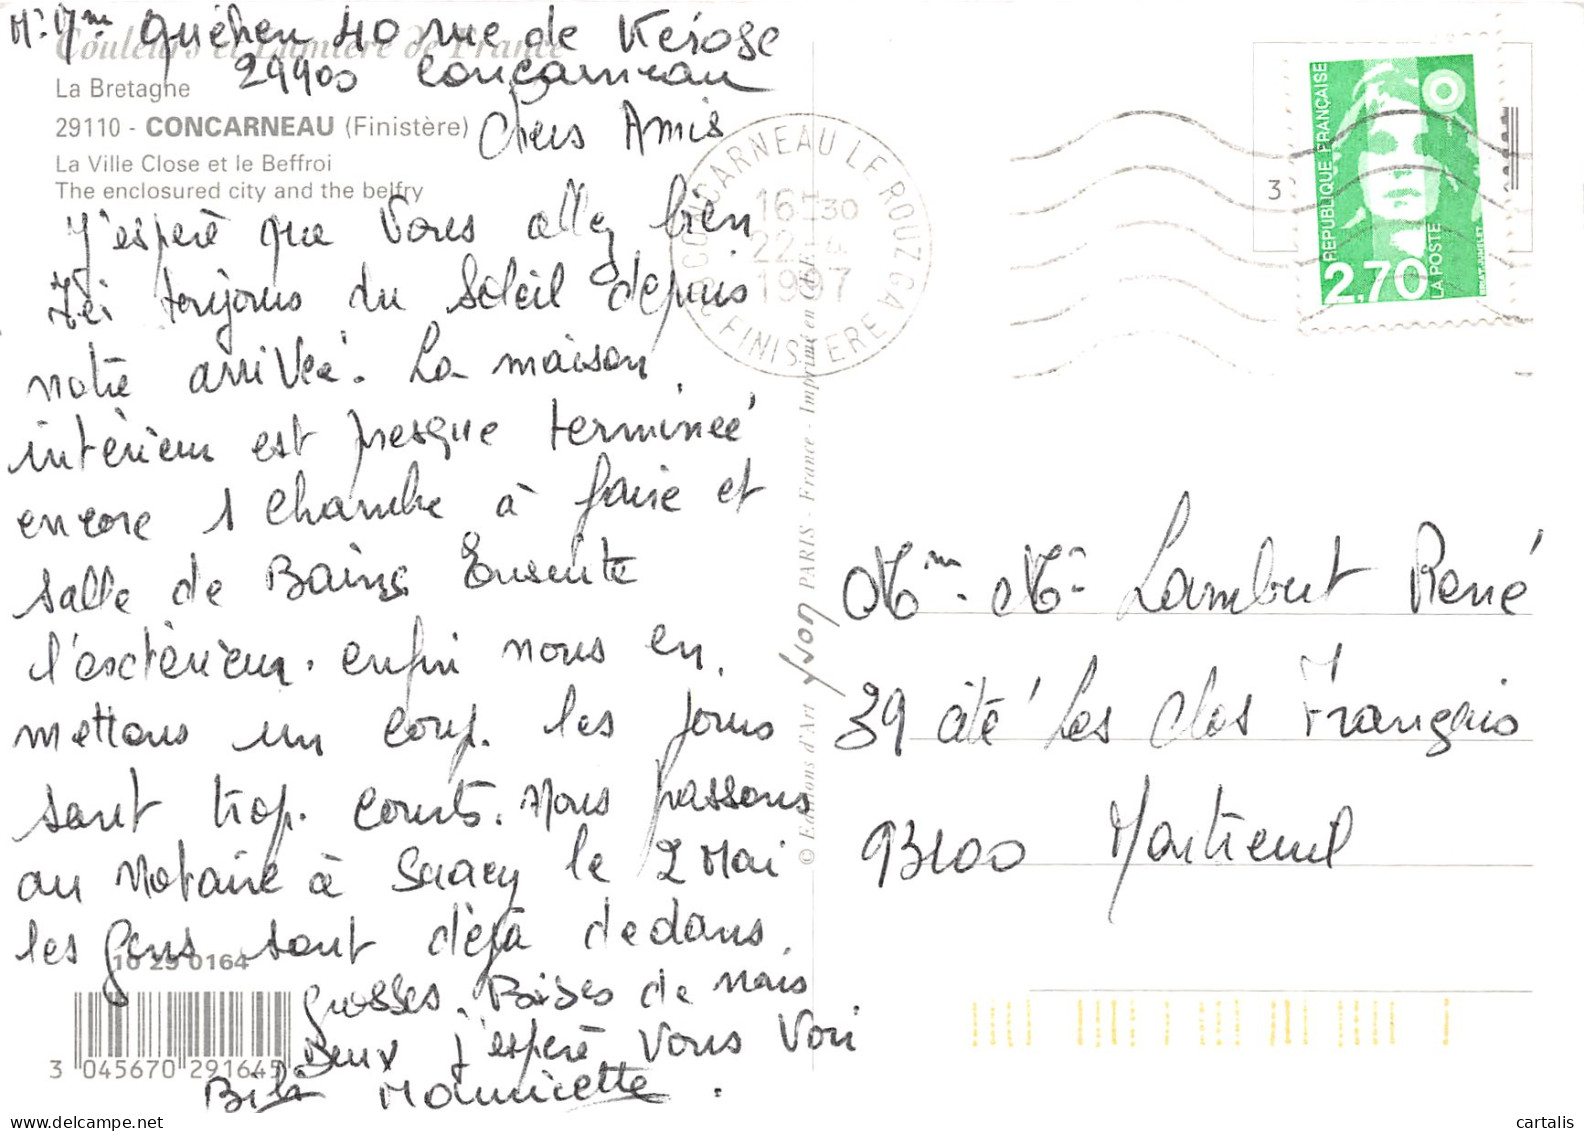 Mr Mme Quéhen 40 rue de Keiose
29900 Concarneau
Couleurs et Lumière de France
La Bretagne
29110 - CONCARNEAU (Finistère)
La Ville Close et le Beffroi
The enclosured city and the belfry
Chers Amis
J'espère que Vous allez bien
Ici toujours du Soleil depuis
notre arrivée. La maison
intérieur est presque terminée
encore 1 Chambre à faire et
salle de Bains Ensuite
l'exctérieur. enfin nous en
mettons un coup. les jours
sont trop. courts. Nous passons
au Notaire à Saacy le 2 Mai
les gens sont déjà dedans.
grosses. Bises de nous
Deux j'espère Vous Voir
Bibi Mauricette.
10 29 0164
3 045670 291645
© Editions d'Art Yvon PARIS - France - Imprimé en CEE
CONCARNEAU LE ROUZ CA
FINISTERE
16H30
22-4
1997
3
REPUBLIQUE FRANÇAISE
2,70
LA POSTE
Mme. Mr Lambert René
39 cité Les Clos Français
93100 Montreuil
cartalis